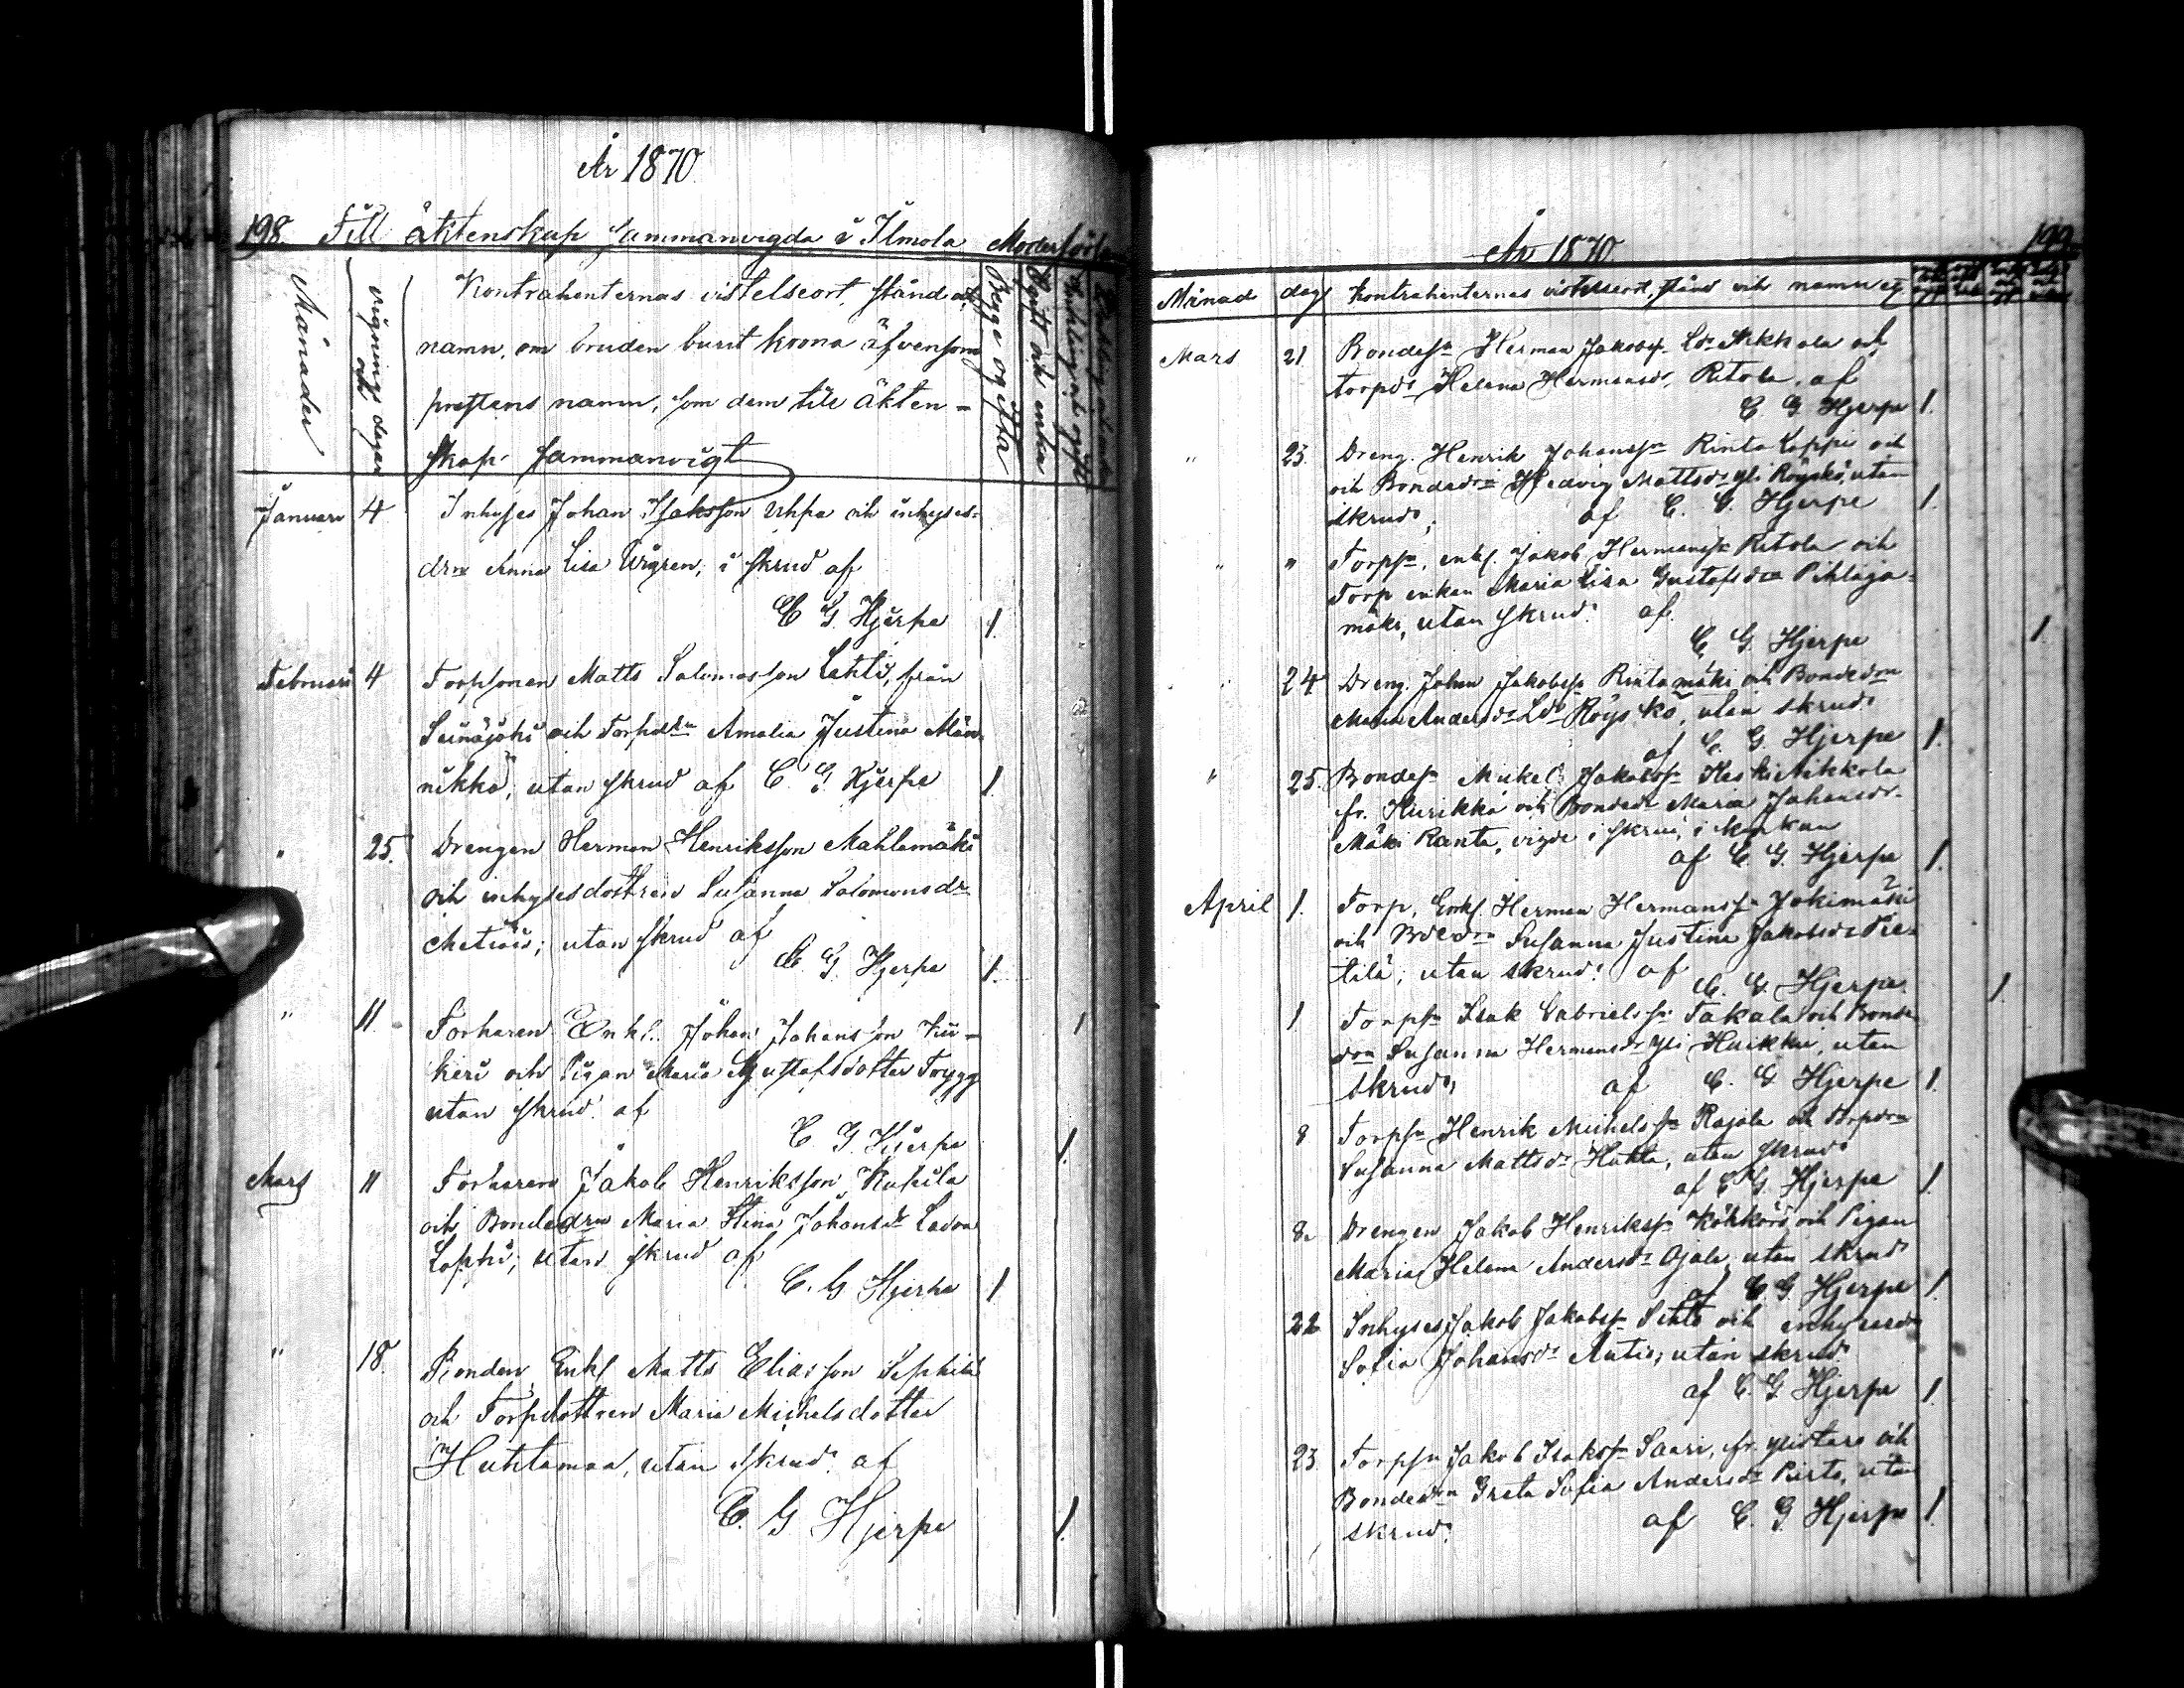 År 1870
198. Till äktenskap sammanvigda i Ilmola Moderförs
Månader
vignings dagar
Kontrahenternas vistelseort, stånd och
namn, om bruden burit krona äfvensom
prestens namn, som dem till äkten-
skap sammanvigt
Begge ogifta
Ogift och enka
Enkling och ogift
Enkling och enka
Januari 4 Inhyses Johan Isaksson och inhyses-
drn Anna Lisa i skrud af
C G Hjerpe 1.
Februari 4 Torpsonen Matts Salomosson Lahti, från
Seinäjoki och Torpdrn Amalia Justina Män-
nikkö, utan skrud af C. G Hjerpe 1
" 25. Drengen Herman Henriksson Mahlamäki
och inhysesdottren Susanna Salomonsdr
utan skrud af
C. G. Hjerpe 1.
" 11 Torparen Enkl. Johan Johansson Kii-
keri och Pigan Maria Gustafsdotter Trygg
utan skrud af
C. G. Hjerpe 1.
Mars 11 Torparen Jakob Henriksson
och Bondedrn Maria Stina Johansdr
utan skrud af
C. G Hjerpe 1
" 18. Bonden Enkl Matts Eliasson
och Torpdottren Maria Michelsdotter
Huhtamaa, utan skrud. af
C. G Hjerpe 1.
År 1870 199.
Månad dag Kontrahenternas vistelseort, stånd och namn
Mars 21 Bondesn Herman Jakobss. och
torpdr Helena Hermansdr. Ritola. af
C G Hjerpe 1.
" 23. Dreng. Henrik Johanssn Rinta Loppi och
och Bondedrn Hedvig Mattsdr Yli Röyskö, utan
skrud, af C. G. Hjerpe 1.
" " Torpsn, enkl. Jakob Hermanssn Ritola och
Torp enkan Maria Lisa Gustafsdr Pihlaja-
mäki, utan skrud. af.
C. G Hjerpe 1.
" 24 Dreng. Johan Jakobssn Rintamäki och Bondedrn
Andersdr Röyskö, utan skrud
af C. G. Hjerpe 1.
" 25. Bondesn Mickel Jakobssn Keski Nikkola
fr. Kurikka och Bondedr Maria Johansdr.
Mäki Ranta, vigde i skrud, i kyrkan
af C. G. Hjerpe 1.
April 1. Torp, Enkl. Herman Hermanssn Jokimäki
och Bdedrn Susanna Justina Jakobsdr Pie-
tilä, utan skrud. af
C. G. Hjerpe. 1.
1 Torpsn Isak Gabrielssn Takala och Bonde
drn Susanna Hermansdr Yli Huikku, utan
skrud, af C. G Hjerpe 1.
8 Torpsn Henrik Michelssn Rajala och Torpdrn
Susanna Mattsdr Huhta, utan skrud
af C G. Hjerpe 1.
8. Drengen Jakob Henrikssn Köhkörö och Pigan
Maria Helena Andersdr Ojala utan skrud
af C G. Hjerpe 1.
22 Inhyses Jakob Jakobssn och inhysesdr
Sofia Johansdr Antis, utan skrud.
af C. G. Hjerpe 1.
23. Torpsn Jakob Isakssn Saari, fr. Ylistaro och
Bondedrn Greta Sofia Andersdr utan
skrud. af C. G. Hjerpe 1.